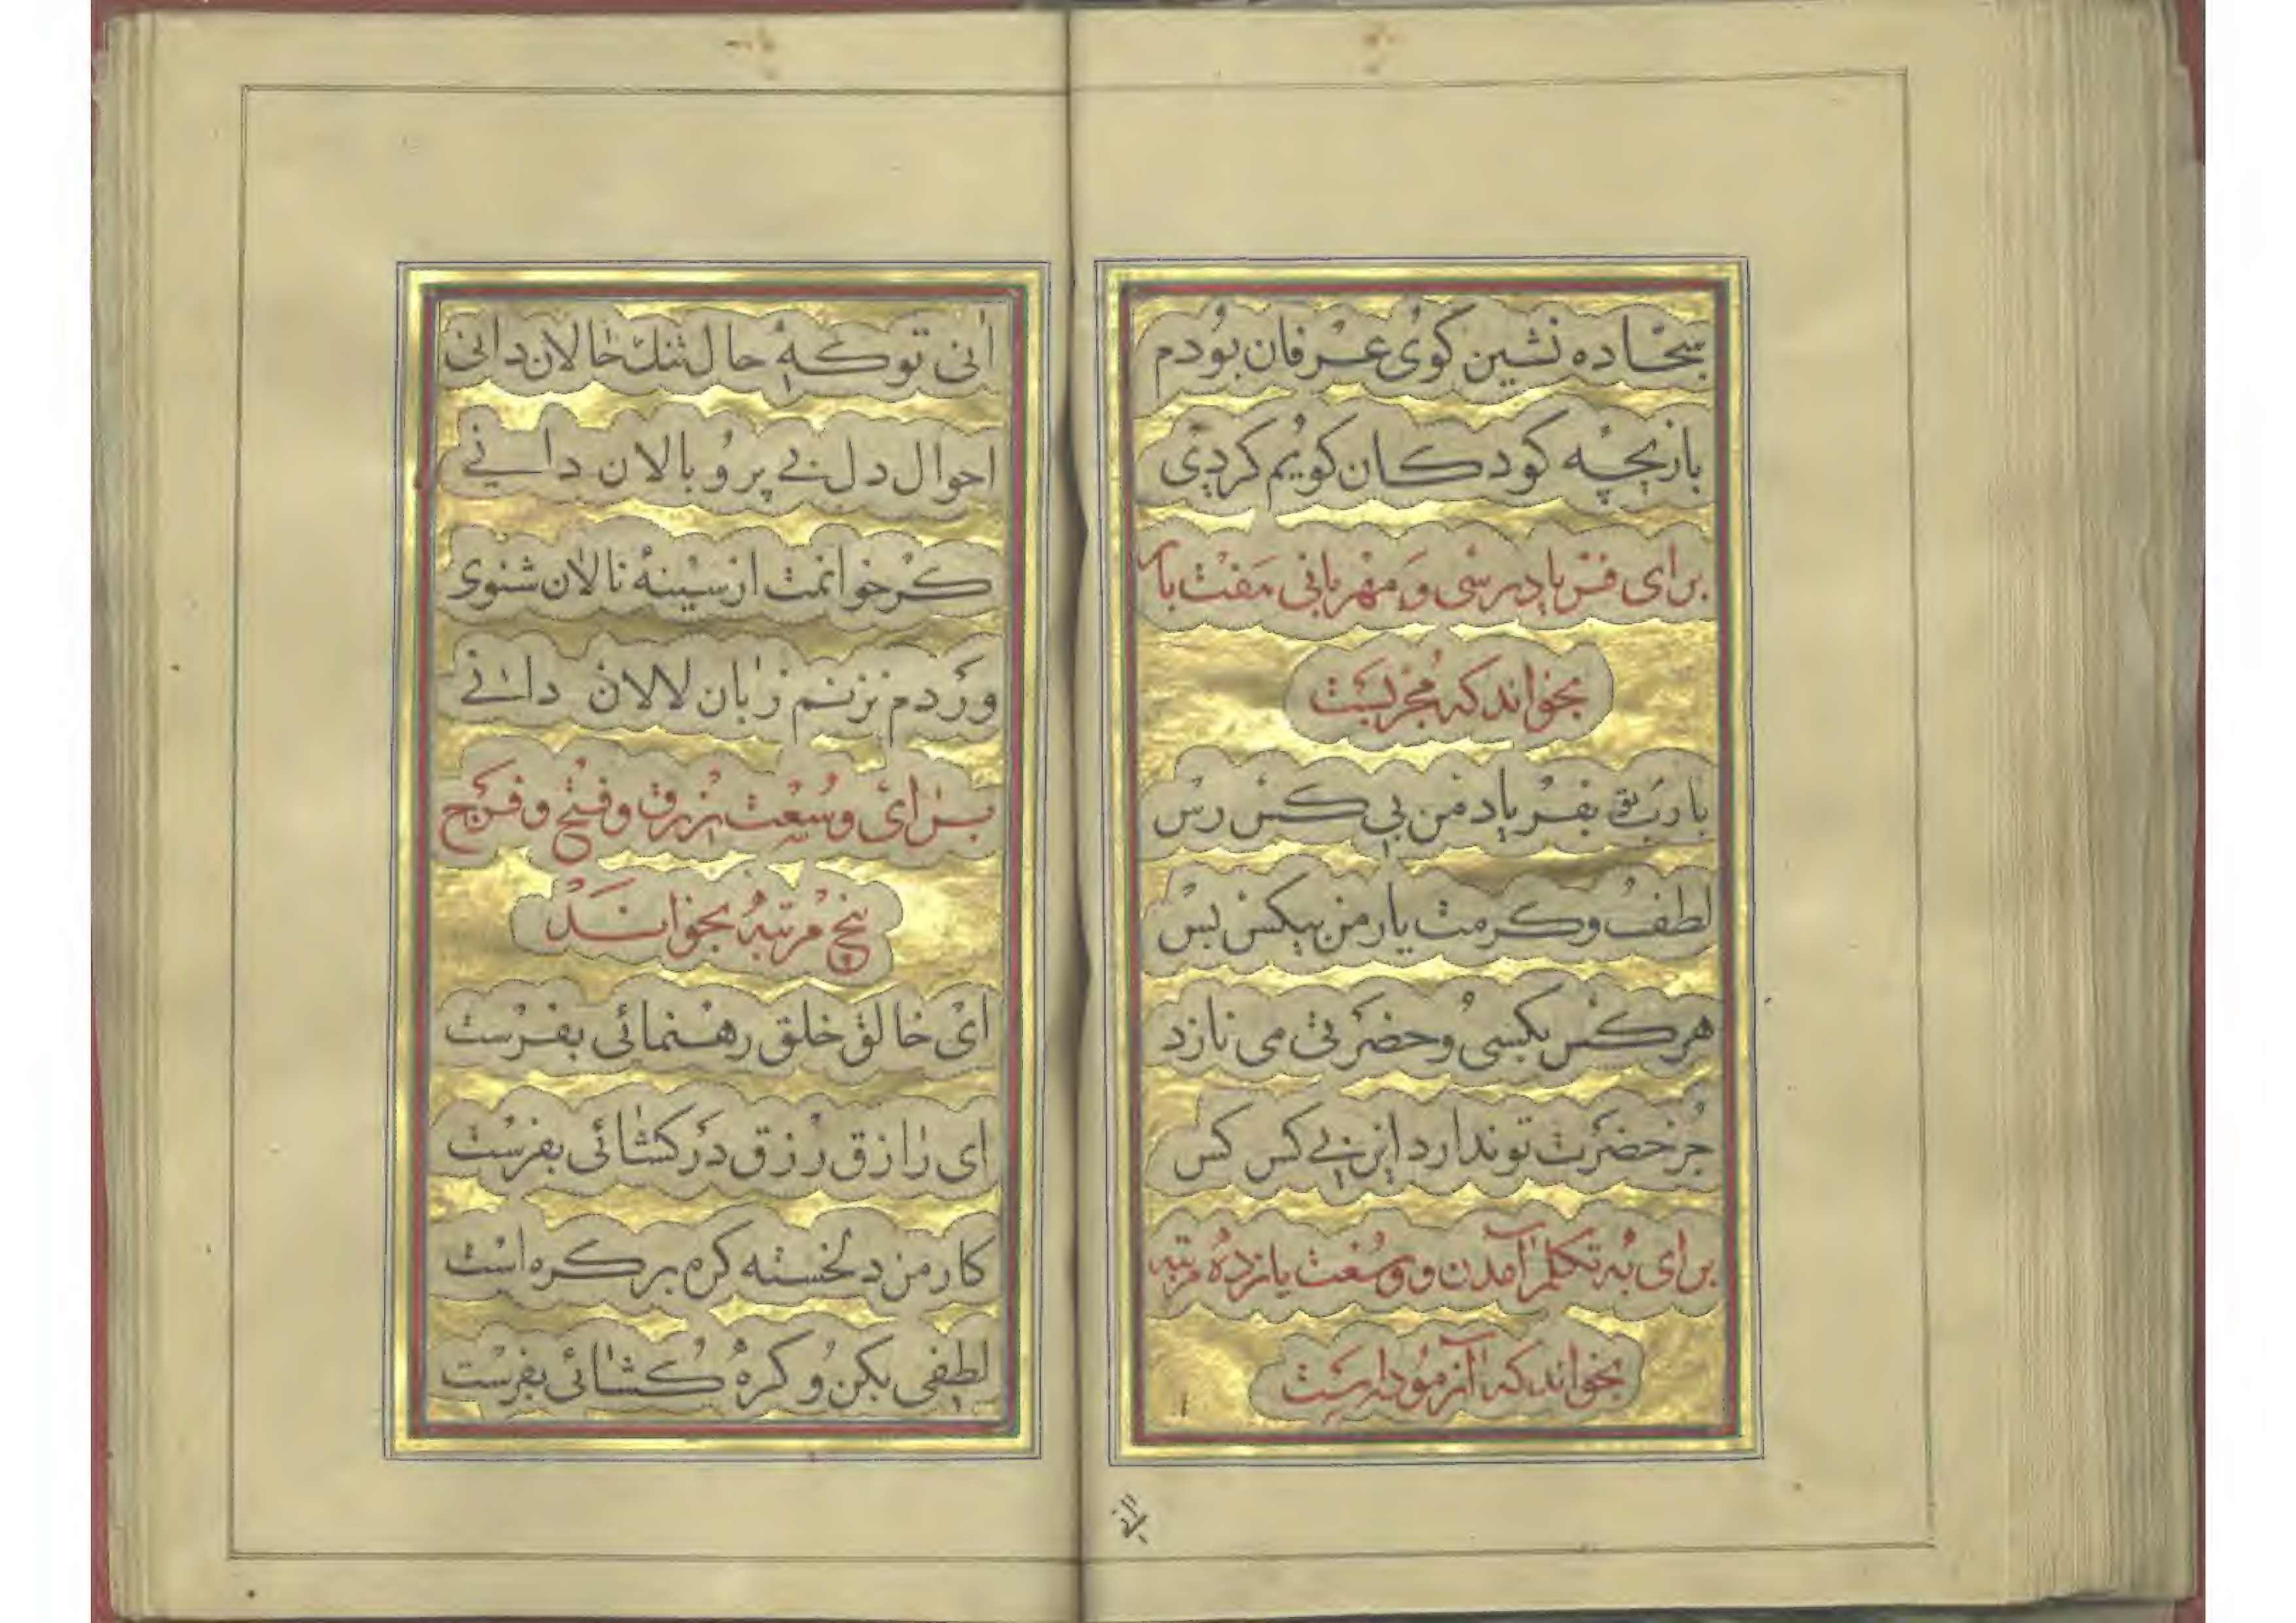 سجاده نشین کوی عرفان بودم
بازیچه کودکان کویم کردی
برای فریادرسی و مهربانی هفت بار
بخواند که مجربست
یا رب تو بفریاد من بی کس رس
لطف و کرمت یار من بیکس بس
هر کس بکسی و حضرتی می نازد
جز حضرت تو ندارد این بی کس کس
برای به تکلم آمدن و وسعت یازده مرتبه
بخواند که آزموده است
آنی تو که حال تنک حالان دانی
احوال دل بی پر و بالان دانی
کر خوانمت از سینه نالان شنوی
ور دم نزنم زبان لالان دانی
برای وسعت رزق و فتح و فرج
پنج مرتبه بخواند
ای خالق خلق رهنمائی بفرست
ای رازق رزق در کشائی بفرست
کار من دلخسته کره بر کره است
لطفی بکن و کره کشائی بفرست